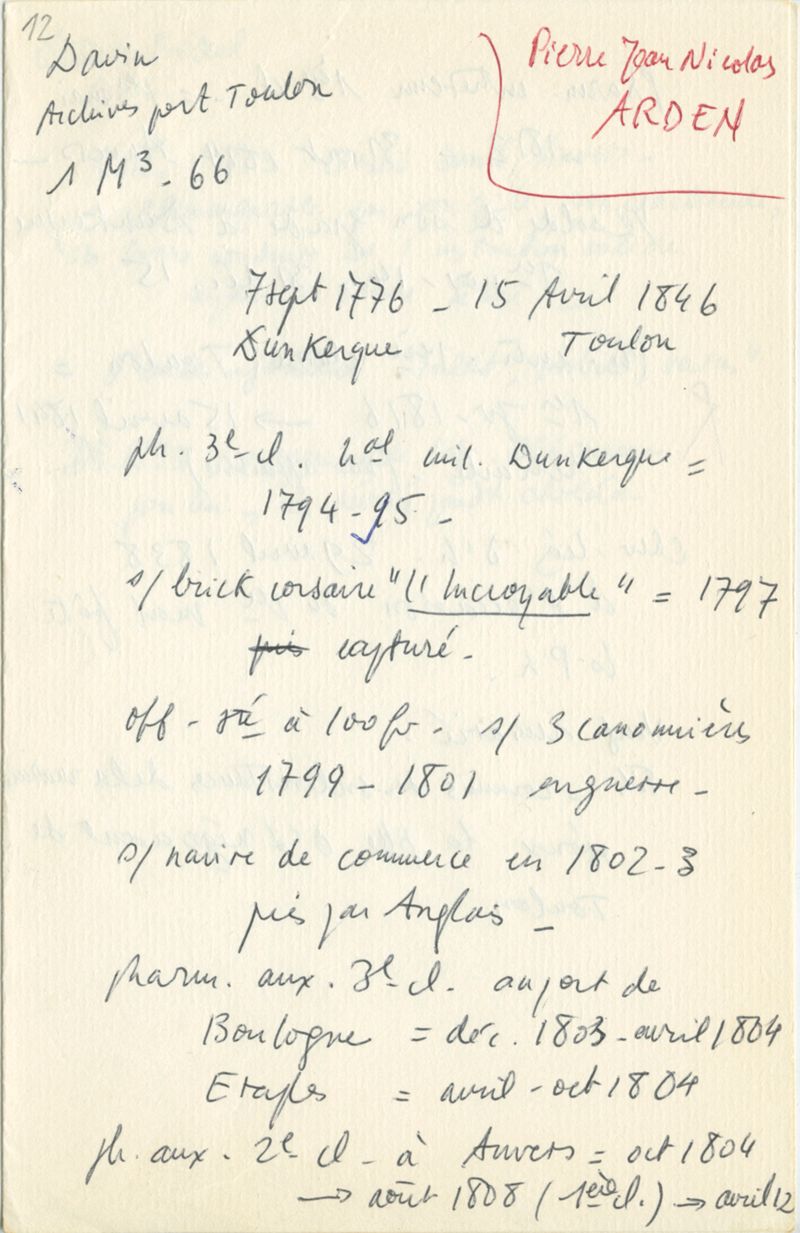 12
Davin
Archives port Toulon
1 M³ - 66
Pierre Jean Nicolas
ARDEN
7 sept 1776 - 15 Avril 1846
Dunkerque Toulon
ph. 3e cl. hal mil. Dunkerque =
1794 - 95 -
s/ brick corsaire "l'Incroyable" = 1797
pris capturé -
off - sté à 100 fr - s/ 3 canonnières
1799 - 1801 en guerre -
s/ navire de commerce en 1802-3
pris par Anglais -
pharm. aux. 3e cl. au port de
Boulogne = déc. 1803 - avril 1804
Etaples = avril - oct 1804
ph. aux. 2e cl - à Anvers = oct 1804
→ août 1808 (1ère cl.) → avril 12